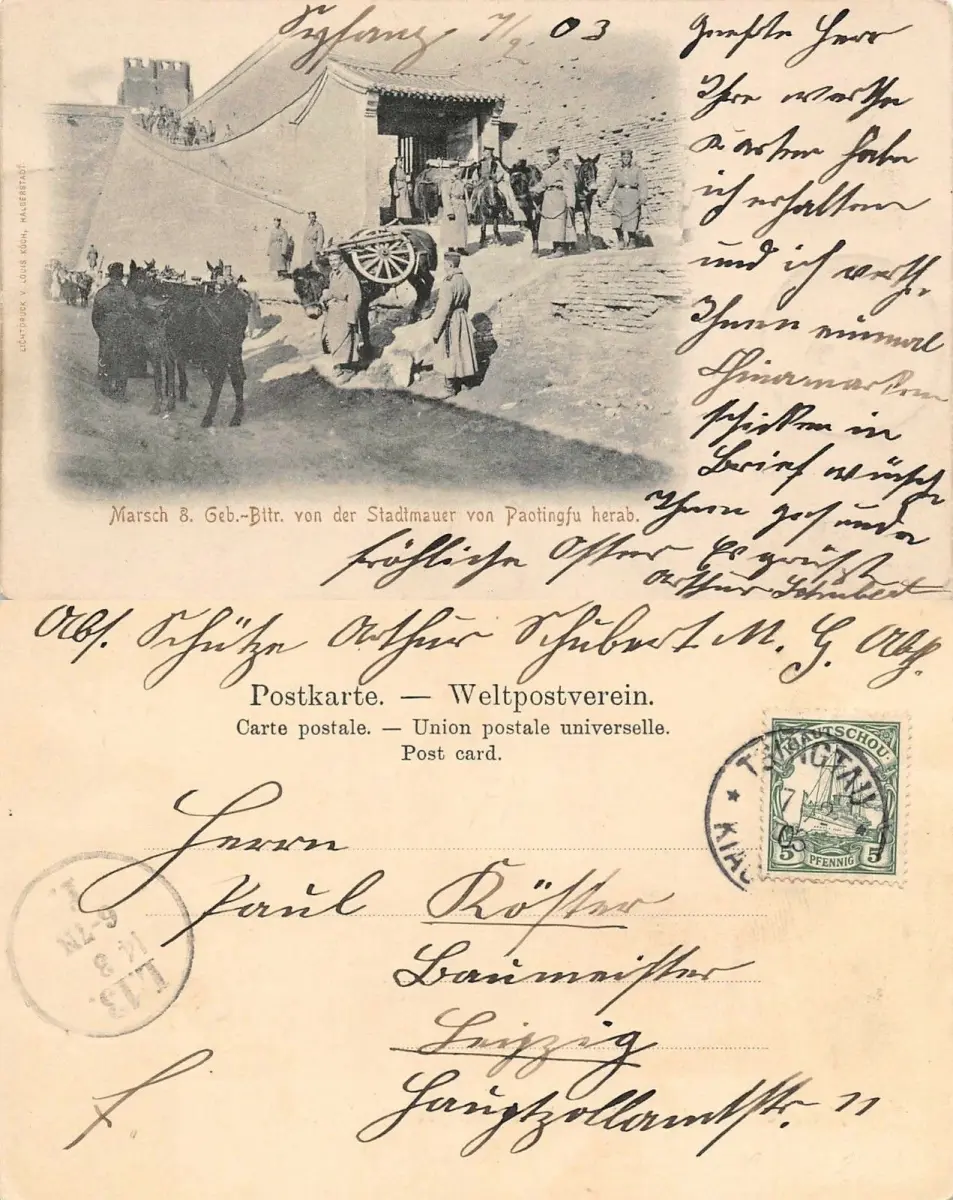 Syfang 7/2. 03
Geehrter Herr
Ihre werthe
Karten habe
ich erhalten
und ich werth.
Ihnen einmal
Chinamarken
schicken in
Brief wünsche
Ihnen gesunde
fröhliche Oster Es grüßt
Arthur Schubert
LICHTDRUCK V. LOUIS KOCH, HALBERSTADT.
Marsch 8. Geb.-Bttr. von der Stadtmauer von Paotingfu herab.
Abs. Schütze Arthur Schubert M. G. Abth.
Postkarte. — Weltpostverein.
Carte postale. — Union postale universelle.
Post card.
KIAUTSCHOU
5 PFENNIG 5
TSINGTAU
7 2 03
KIAU
Herrn
Paul Köster
Baumeister
Leipzig
Hauptzollamtstr. 11
L. 13.
14 3
6-7N